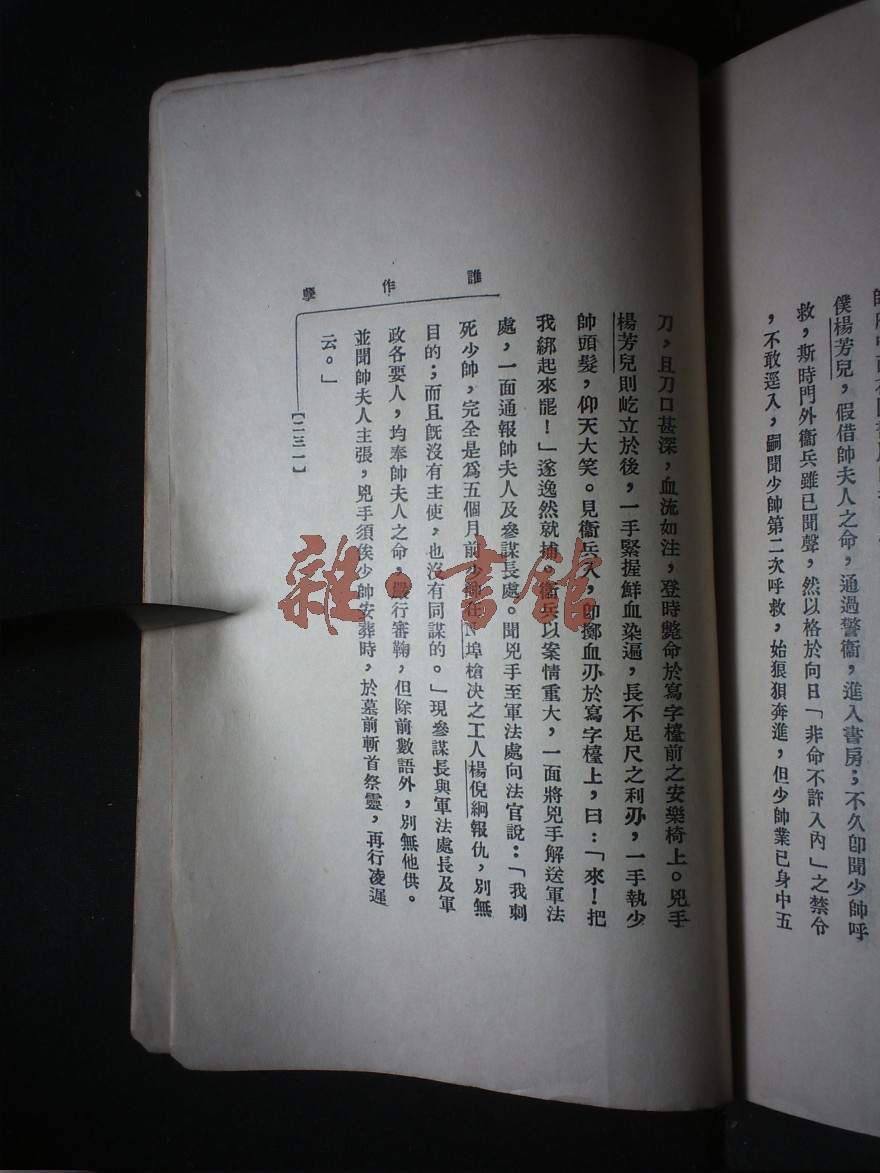 僕楊芳兒，假借帥夫人之命，通過警衞，進入書房；不久卽聞少帥呼
救，斯時門外衞兵雖已聞聲，然以格於向日「非命不許入內」之禁令
，不敢逕入，嗣聞少帥第二次呼救，始狠狽奔進，但少帥業已身中五
刀，且刀口甚深，血流如注，登時斃命於寫字檯前之安樂椅上。兇手
楊芳兒則屹立於後，一手緊握鮮血染遍，長不足尺之利刃，一手執少
帥頭髮，仰天大笑。見衞兵入，卽擲血刃於寫字檯上，曰：「來！把
我綁起來罷！」遂逸然就捕，衞兵以案情重大，一面將兇手解送軍法
處，一面通報帥夫人及參謀長處。聞兇手至軍法處向法官說：「我刺
死少帥，完全是爲五個月前少帥在N埠槍决之工人楊倪綱報仇，別無
目的；而且旣沒有主使，也沒有同謀的。」現參謀長與軍法處長及軍
政各要人，均奉帥夫人之命，嚴行審鞫，但除前數語外，別無他供。
並聞帥夫人主張，兇手須俟少帥安葬時，於墓前斬首祭靈，再行凌遲
云。」
誰作孽
【二三一】
雜·書館